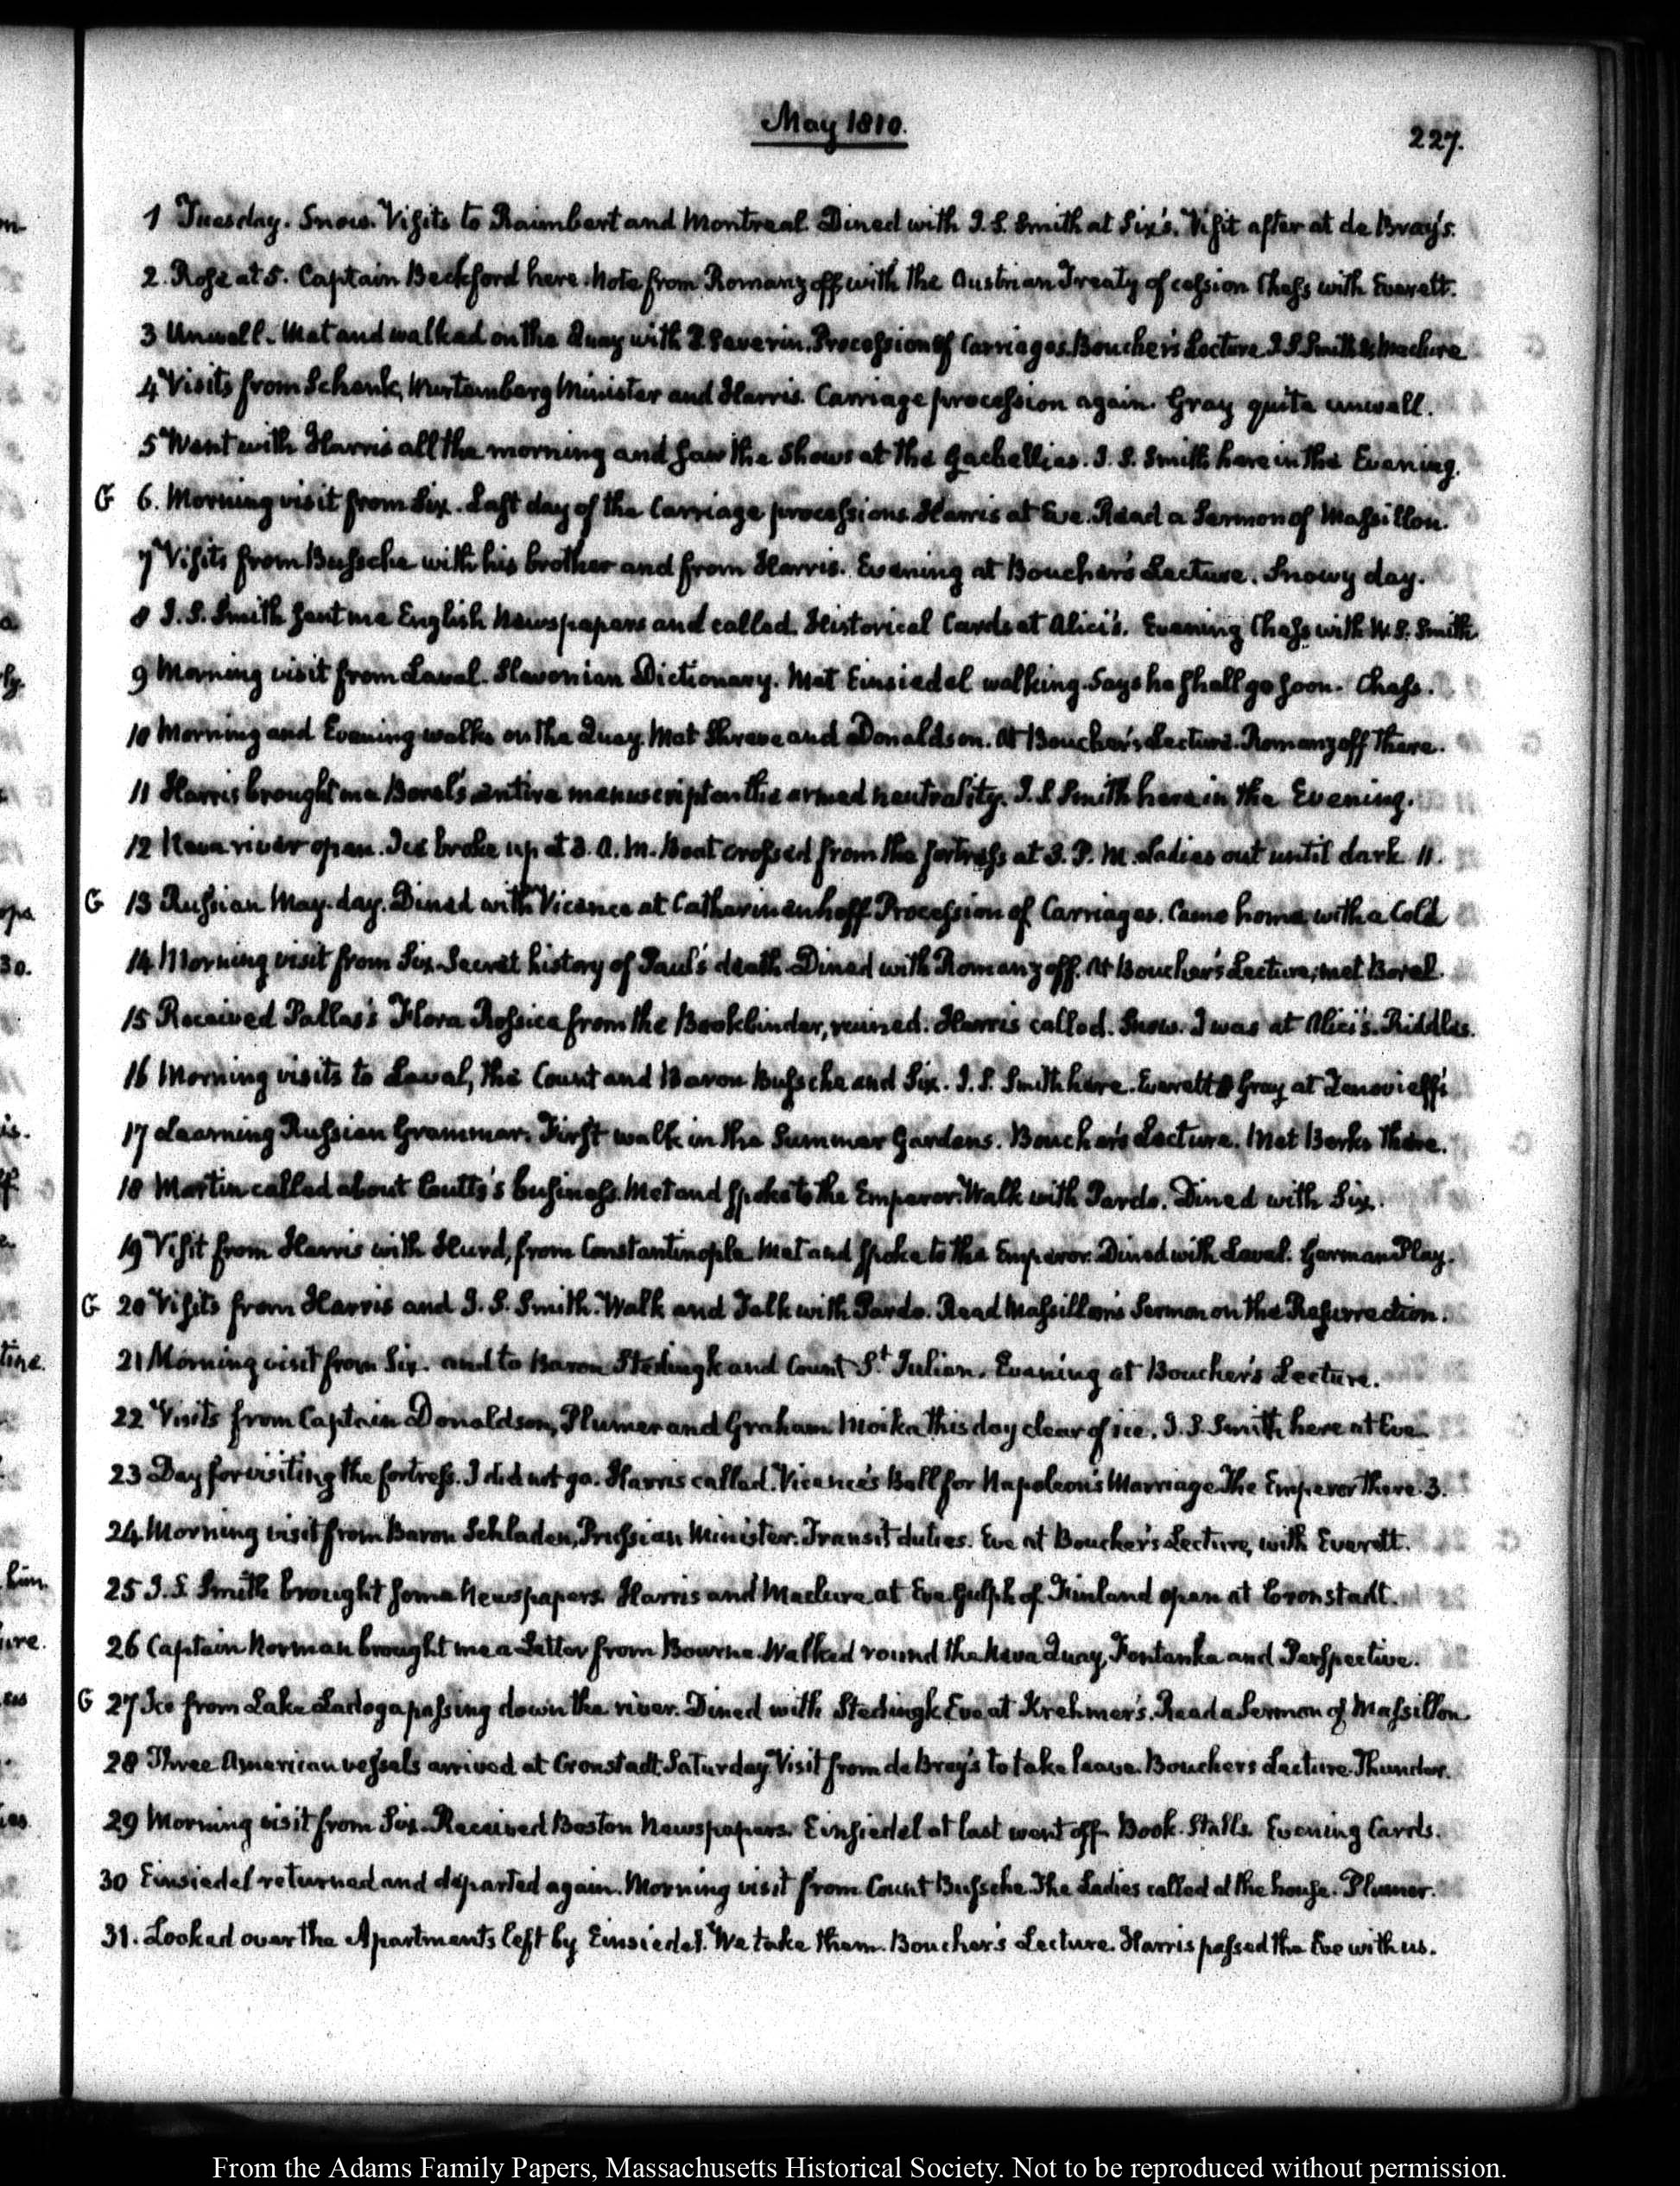 May 1810.
227.
1 Tuesday. Snow. Visits to Raimbert and Montreal. Dined with J. S. Smith at Six's. Visit after at de Bray's.
2. Rose at 5. Captain Beckford here. Note from Romanzoff with the Austrian Treaty of cession Chess with Everett.
3 Unwell. Met and walked on the Quay with Severin. Procession of Carriages. Boucher's Lecture J. S. Smith & Maclure
4 Visits from Schenk, Wurtemberg Minister and Harris. Carriage procession again. Gray quite unwell.
5 Went with Harris all the morning and saw the Shows at the Gachellies. J. S. Smith here in the Evening.
G 6. Morning visit from Six. Last day of the Carriage processions. Harris at Eve. Read a Sermon of Massillon.
7 Visits from Bussche with his brother and from Harris. Evening at Boucher's Lecture. Snowy day.
8 J. S. Smith sent me English Newspapers and called. Historical Cards at Alici's. Evening Chess with W. S. Smith
9 Morning visit from Laval. Slavonian Dictionary. Met Einsiedel walking. Says he shall go soon. Chess.
10 Morning and Evening walks on the Quay. Met Shreve and Donaldson. At Boucher's Lecture. Romanzoff there.
11 Harris brought me Borel's entire manuscript on the armed neutrality. J. S. Smith here in the Evening.
12 Neva river open. Ice broke up at 3. A. M. Boat crossed from the fortress at 3. P. M. Ladies out until dark. 11.
G 13 Russian May-day. Dined with Vicence at Catharinenhoff. Procession of Carriages. Came home, with a Cold
14 Morning visit from Six. Secret history of Paul's death. Dined with Romanzoff. At Boucher's Lecture, met Borel.
15 Received Pallas's Flora Rossica from the Bookbinder, ruined. Harris called. Snow. I was at Alici's. Riddles.
16 Morning visits to Laval, the Count and Baron Bussche and Six. J. S. Smith here. Everett & Gray at Zenovieff's
17 Learning Russian Grammar. First walk in the Summer Gardens. Boucher's Lecture. Met Berks there.
18 Martin called about Coutts's business. Met and spoke to the Emperor. Walk with Pardo. Dined with Six.
19 Visit from Harris with Hurd, from Constantinople. Met and spoke to the Emperor. Dined with Laval. German Play.
G 20 Visits from Harris and J. S. Smith. Walk and Talk with Pardo. Read Massillon's Sermon on the Resurrection.
21 Morning visit from Six. and to Baron Stedingk and Count St. Julien. Evening at Boucher's Lecture.
22 Visits from Captain Donaldson, Plumer and Graham. Moika this day clear of ice. J. S. Smith here at Eve.
23 Day for visiting the fortress. I did not go. Harris called. Vicence's Ball for Napoleon's Marriage. The Emperor there. 3.
24 Morning visit from Baron Schladen, Prussian Minister. Transit duties. Eve at Boucher's Lecture, with Everett.
25 J. S. Smith brought some Newspapers. Harris and Maclure at Eve. Gulph of Finland open at Cronstadt.
26 Captain Norman brought me a Letter from Bourne. Walked round the Neva Quay, Fontanka and Perspective.
G 27 Ice from Lake Ladoga passing down the river. Dined with Stedingk. Eve at Krehmer's. Read a Sermon of Massillon.
28 Three American vessels arrived at Cronstadt Saturday. Visit from de Bray's to take leave. Bouchers Lecture. Thunder.
29 Morning visit from Six. Received Boston Newspapers. Einsiedel at last went off. Book-Stalls. Evening Cards.
30 Einsiedel returned and departed again. Morning visit from Count Bussche. The Ladies called at the house. Plumer.
31. Looked over the Apartments left by Einsiedel. We take them. Boucher's Lecture. Harris passed the Eve with us.
From the Adams Family Papers, Massachusetts Historical Society. Not to be reproduced without permission.